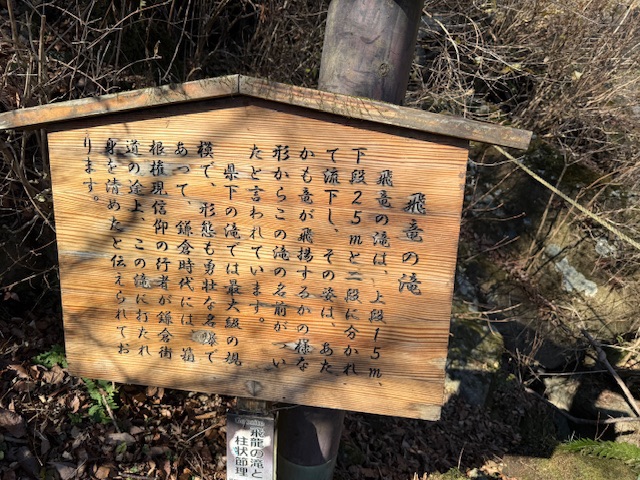 飛竜の滝
飛竜の滝は、上段15m、
下段25mと二段に分かれ
て流下し、その姿は、あた
かも竜が飛揚するかの様な
形からこの滝の名前がつい
たと言われています。
県下の滝では最大級の規
模で、形態も勇壮な名瀑で
あって、鎌倉時代には、箱
根権現信仰の行者が鎌倉街
道の途上、この滝に打たれ
身を清めたと伝えられてお
ります。
飛龍の滝と
柱状節理